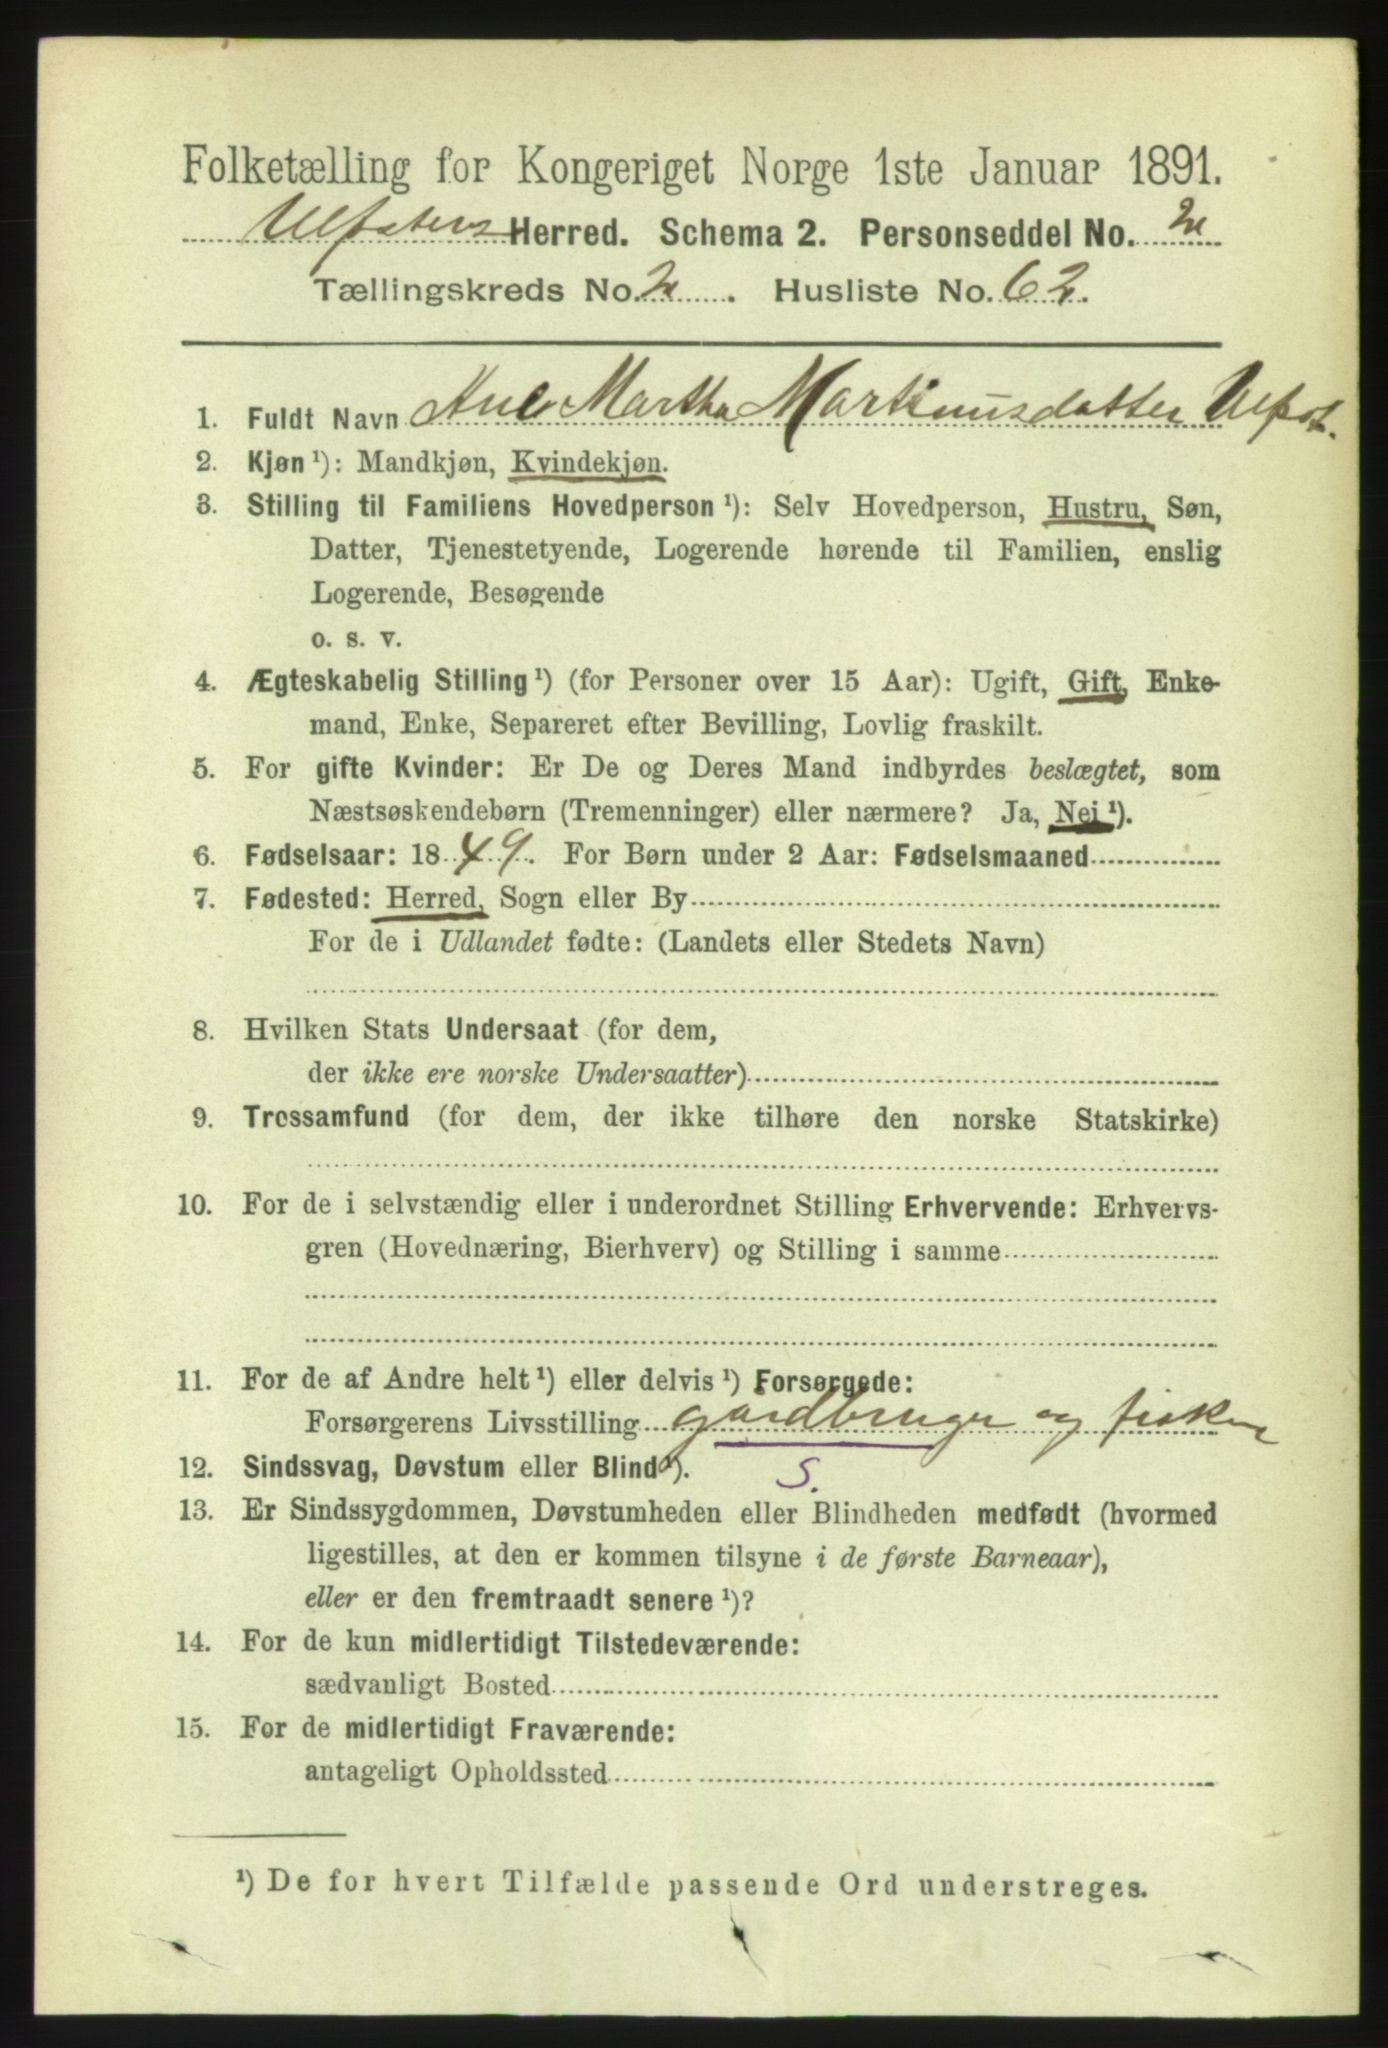 Folketælling for Kongeriget Norge 1ste Januar 1891.
Ulfstens Herred. Schema 2. Personseddel No. 2
Tællingskreds No. 2. Husliste No. 62.
1. Fuldt Navn Ane Martha Martinusdatter Ulfst.
2. Kjøn ¹): Mandkjøn, Kvindekjøn.
3. Stilling til Familiens Hovedperson ¹): Selv Hovedperson, Hustru, Søn,
Datter, Tjenestetyende, Logerende hørende til Familien, enslig
Logerende, Besøgende
o. s. v.
4. Ægteskabelig Stilling ¹) (for Personer over 15 Aar): Ugift, Gift, Enke-
mand, Enke, Separeret efter Bevilling, Lovlig fraskilt.
5. For gifte Kvinder: Er De og Deres Mand indbyrdes beslægtet, som
Næstsøskendebørn (Tremenninger) eller nærmere? Ja, Nei ¹).
6. Fødselsaar: 1849. For Børn under 2 Aar: Fødselsmaaned
7. Fødested: Herred, Sogn eller By
For de i Udlandet fødte: (Landets eller Stedets Navn)
8. Hvilken Stats Undersaat (for dem,
der ikke ere norske Undersaatter)
9. Trossamfund (for dem, der ikke tilhøre den norske Statskirke)
10. For de i selvstændig eller i underordnet Stilling Erhvervende: Erhvervs-
gren (Hovednæring, Bierhverv) og Stilling i samme
11. For de af Andre helt ¹) eller delvis ¹) Forsørgede:
Forsørgerens Livsstilling gaardbruger og fisker
12. Sindssvag, Døvstum eller Blind ¹). S.
13. Er Sindssygdommen, Døvstumheden eller Blindheden medfødt (hvormed
ligestilles, at den er kommen tilsyne i de første Barneaar),
eller er den fremtraadt senere ¹)?
14. For de kun midlertidigt Tilstedeværende:
sædvanligt Bosted
15. For de midlertidigt Fraværende:
antageligt Opholdssted
¹) De for hvert Tilfælde passende Ord understreges.